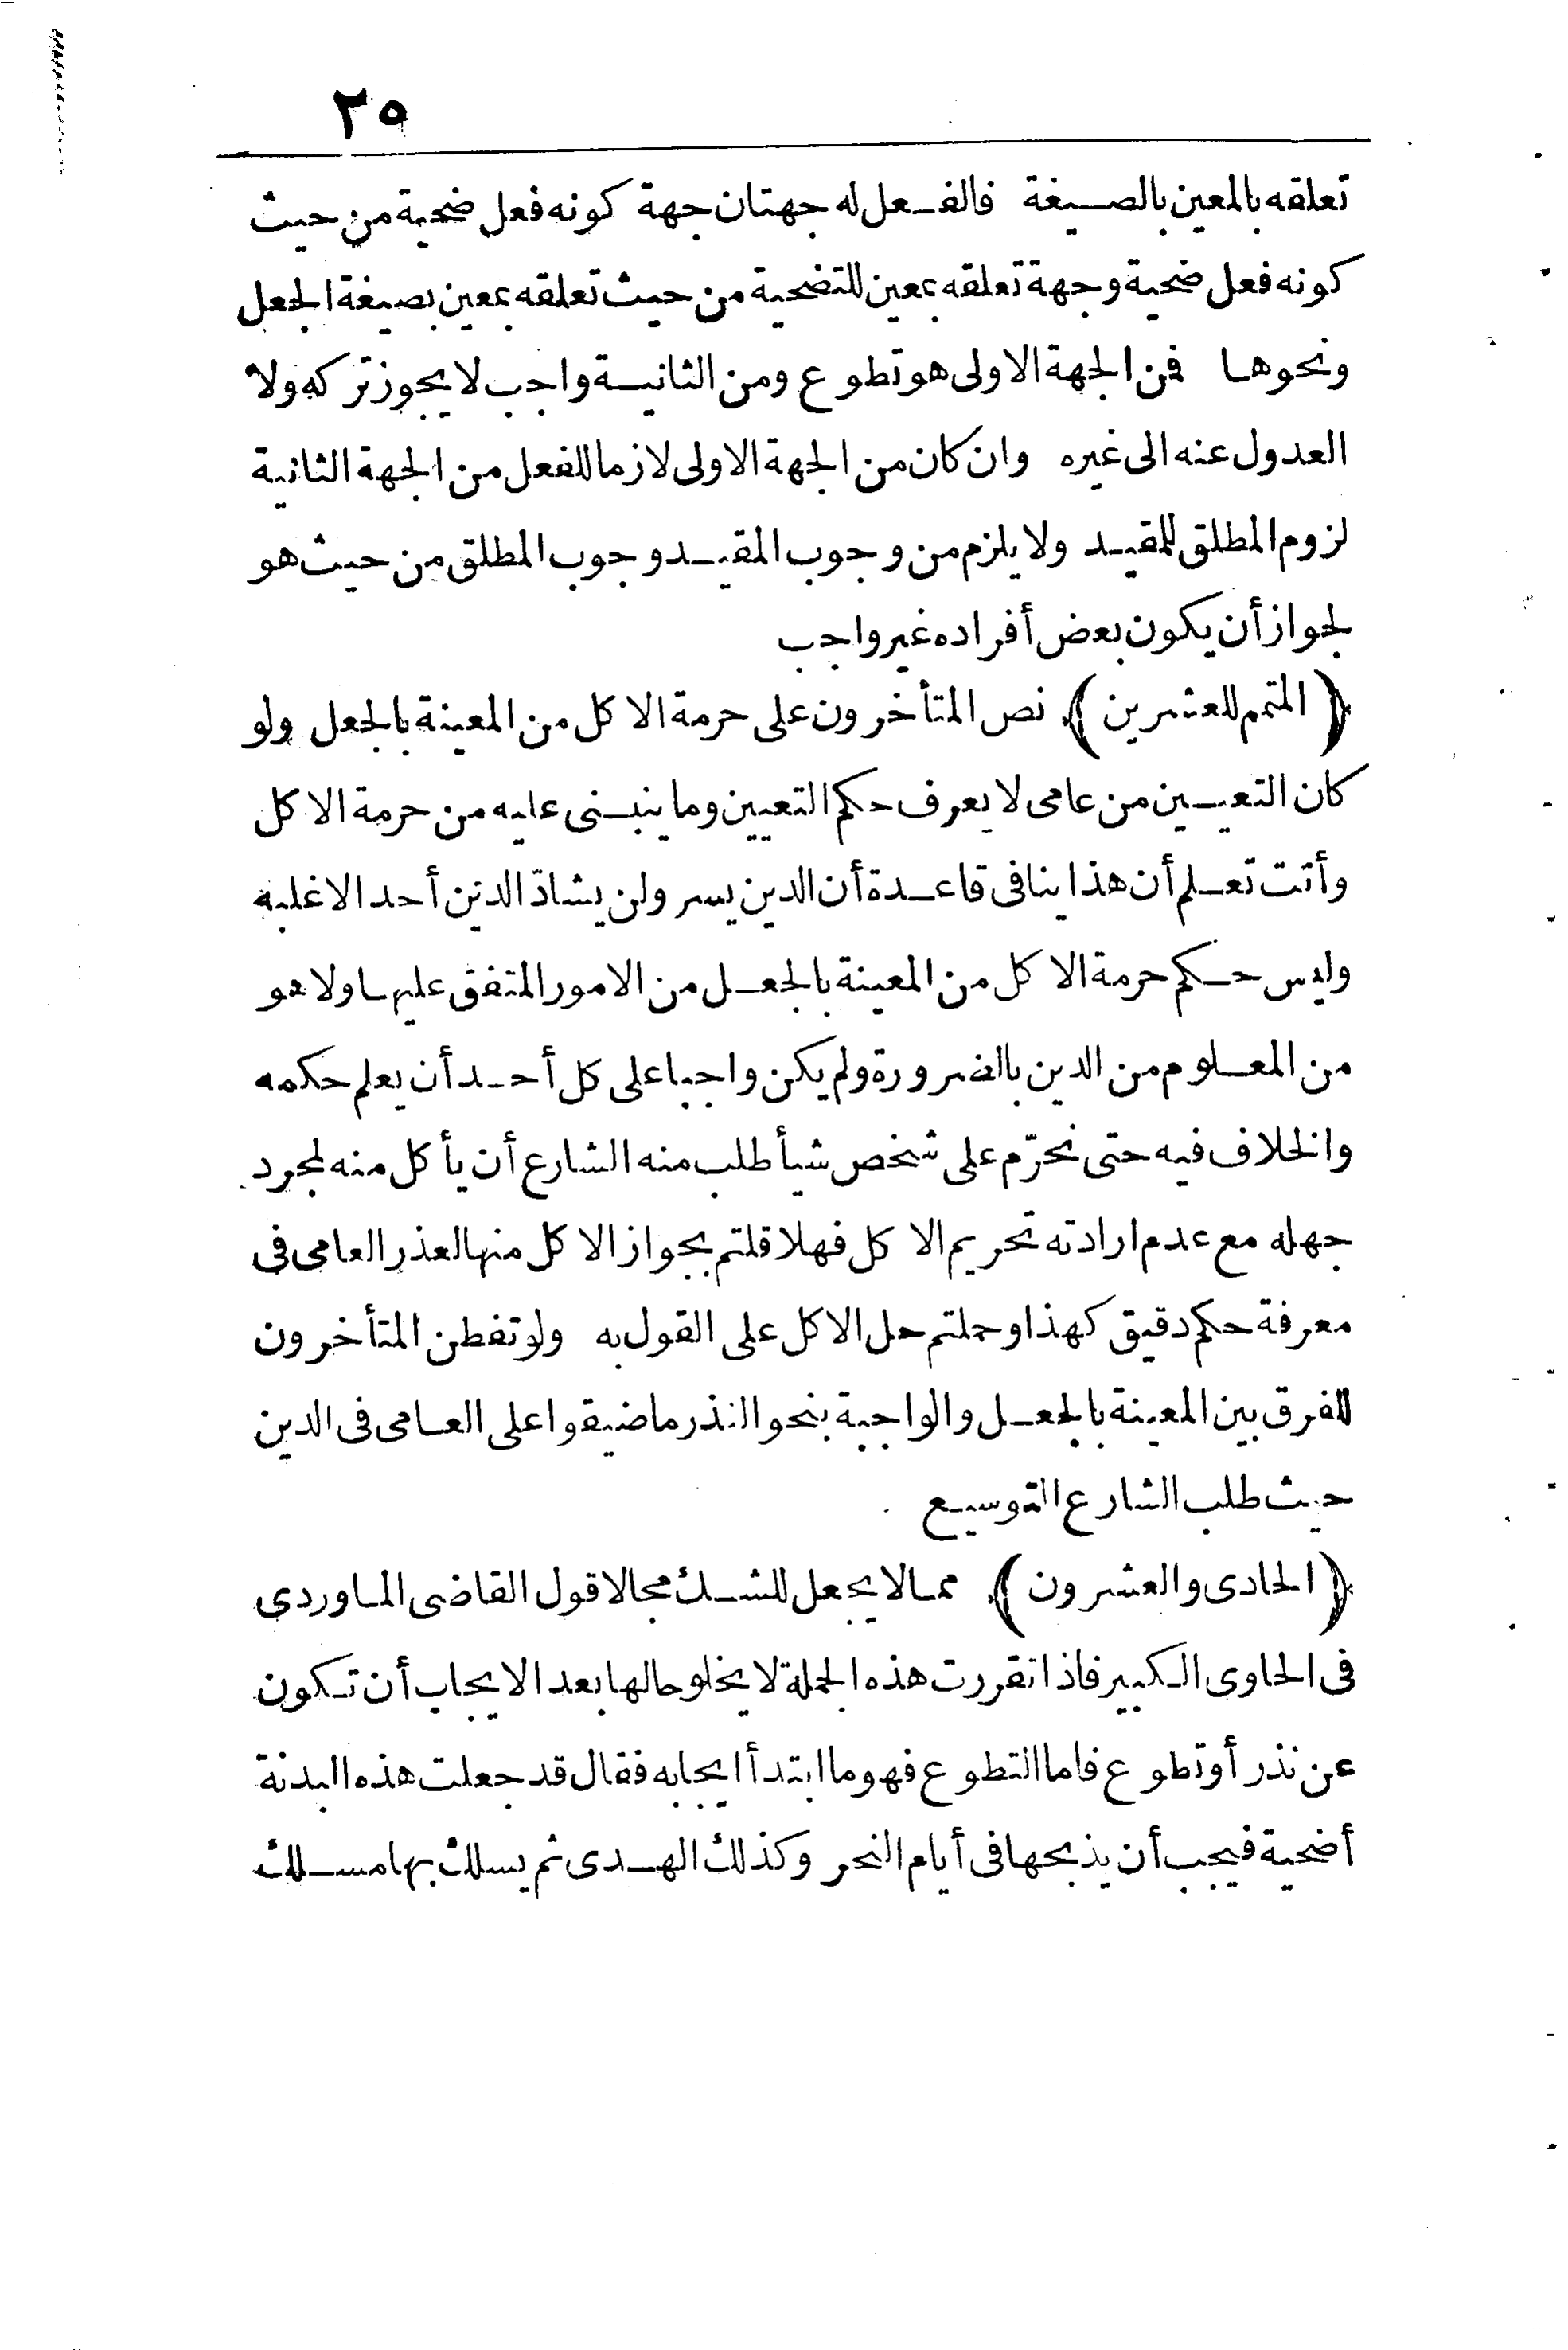 ٢٥
تعلقه بالمعين بالصيغة فالفعل له جهتان جهة كونه فعل ضحية من حيث
كونه فعل ضحية وجهة تعلقه بمعين للتضحية من حيث تعلقه بمعين بصيغة الجعل
ونحوها فمن الجهة الاولى هو تطوع ومن الثانية واجب لا يجوز تركه ولا
العدول عنه الى غيره وان كان من الجهة الاولى لازما للفعل من الجهة الثانية
لزوم المطلق للمقيد ولا يلزم من وجوب المقيد وجوب المطلق من حيث هو
لجواز أن يكون بعض أفراده غير واجب
﴿ المتمم للعشرين ﴾ نص المتأخرون على حرمة الاكل من المعينة بالجعل ولو
كان التعيين من عامى لا يعرف حكم التعيين وما ينبنى عليه من حرمة الاكل
وأنت تعلم أن هذا ينافى قاعدة أن الدين يسر ولن يشادّ الدين أحد الا غلبه
وليس حكم حرمة الاكل من المعينة بالجعل من الامور المتفق عليها ولا هو
من المعلوم من الدين بالضرورة ولم يكن واجبا على كل أحد أن يعلم حكمه
والخلاف فيه حتى نحرّم على شخص شيأ طلب منه الشارع أن يأكل منه لمجرد
جهله مع عدم ارادته تحريم الاكل فهلا قلتم بجواز الاكل منها لعذر العامى فى
معرفة حكم دقيق كهذا وحملتم حل الاكل على القول به ولو تفطن المتأخرون
للفرق بين المعينة بالجعل والواجبة بنحو النذر ما ضيقوا على العامى فى الدين
حيث طلب الشارع التوسيع
﴿ الحادى والعشرون ﴾ مما لا يجعل للشك مجالا قول القاضى الماوردى
فى الحاوى الكبير فاذا تقررت هذه الجملة لا يخلو حالها بعد الايجاب أن تكون
عن نذر أو تطوع فاما التطوع فهو ما ابتدأ ايجابه فقال قد جعلت هذه البدنة
أضحية فيجب أن يذبحها فى أيام النحر وكذلك الهدى ثم يسلك بها مسلك